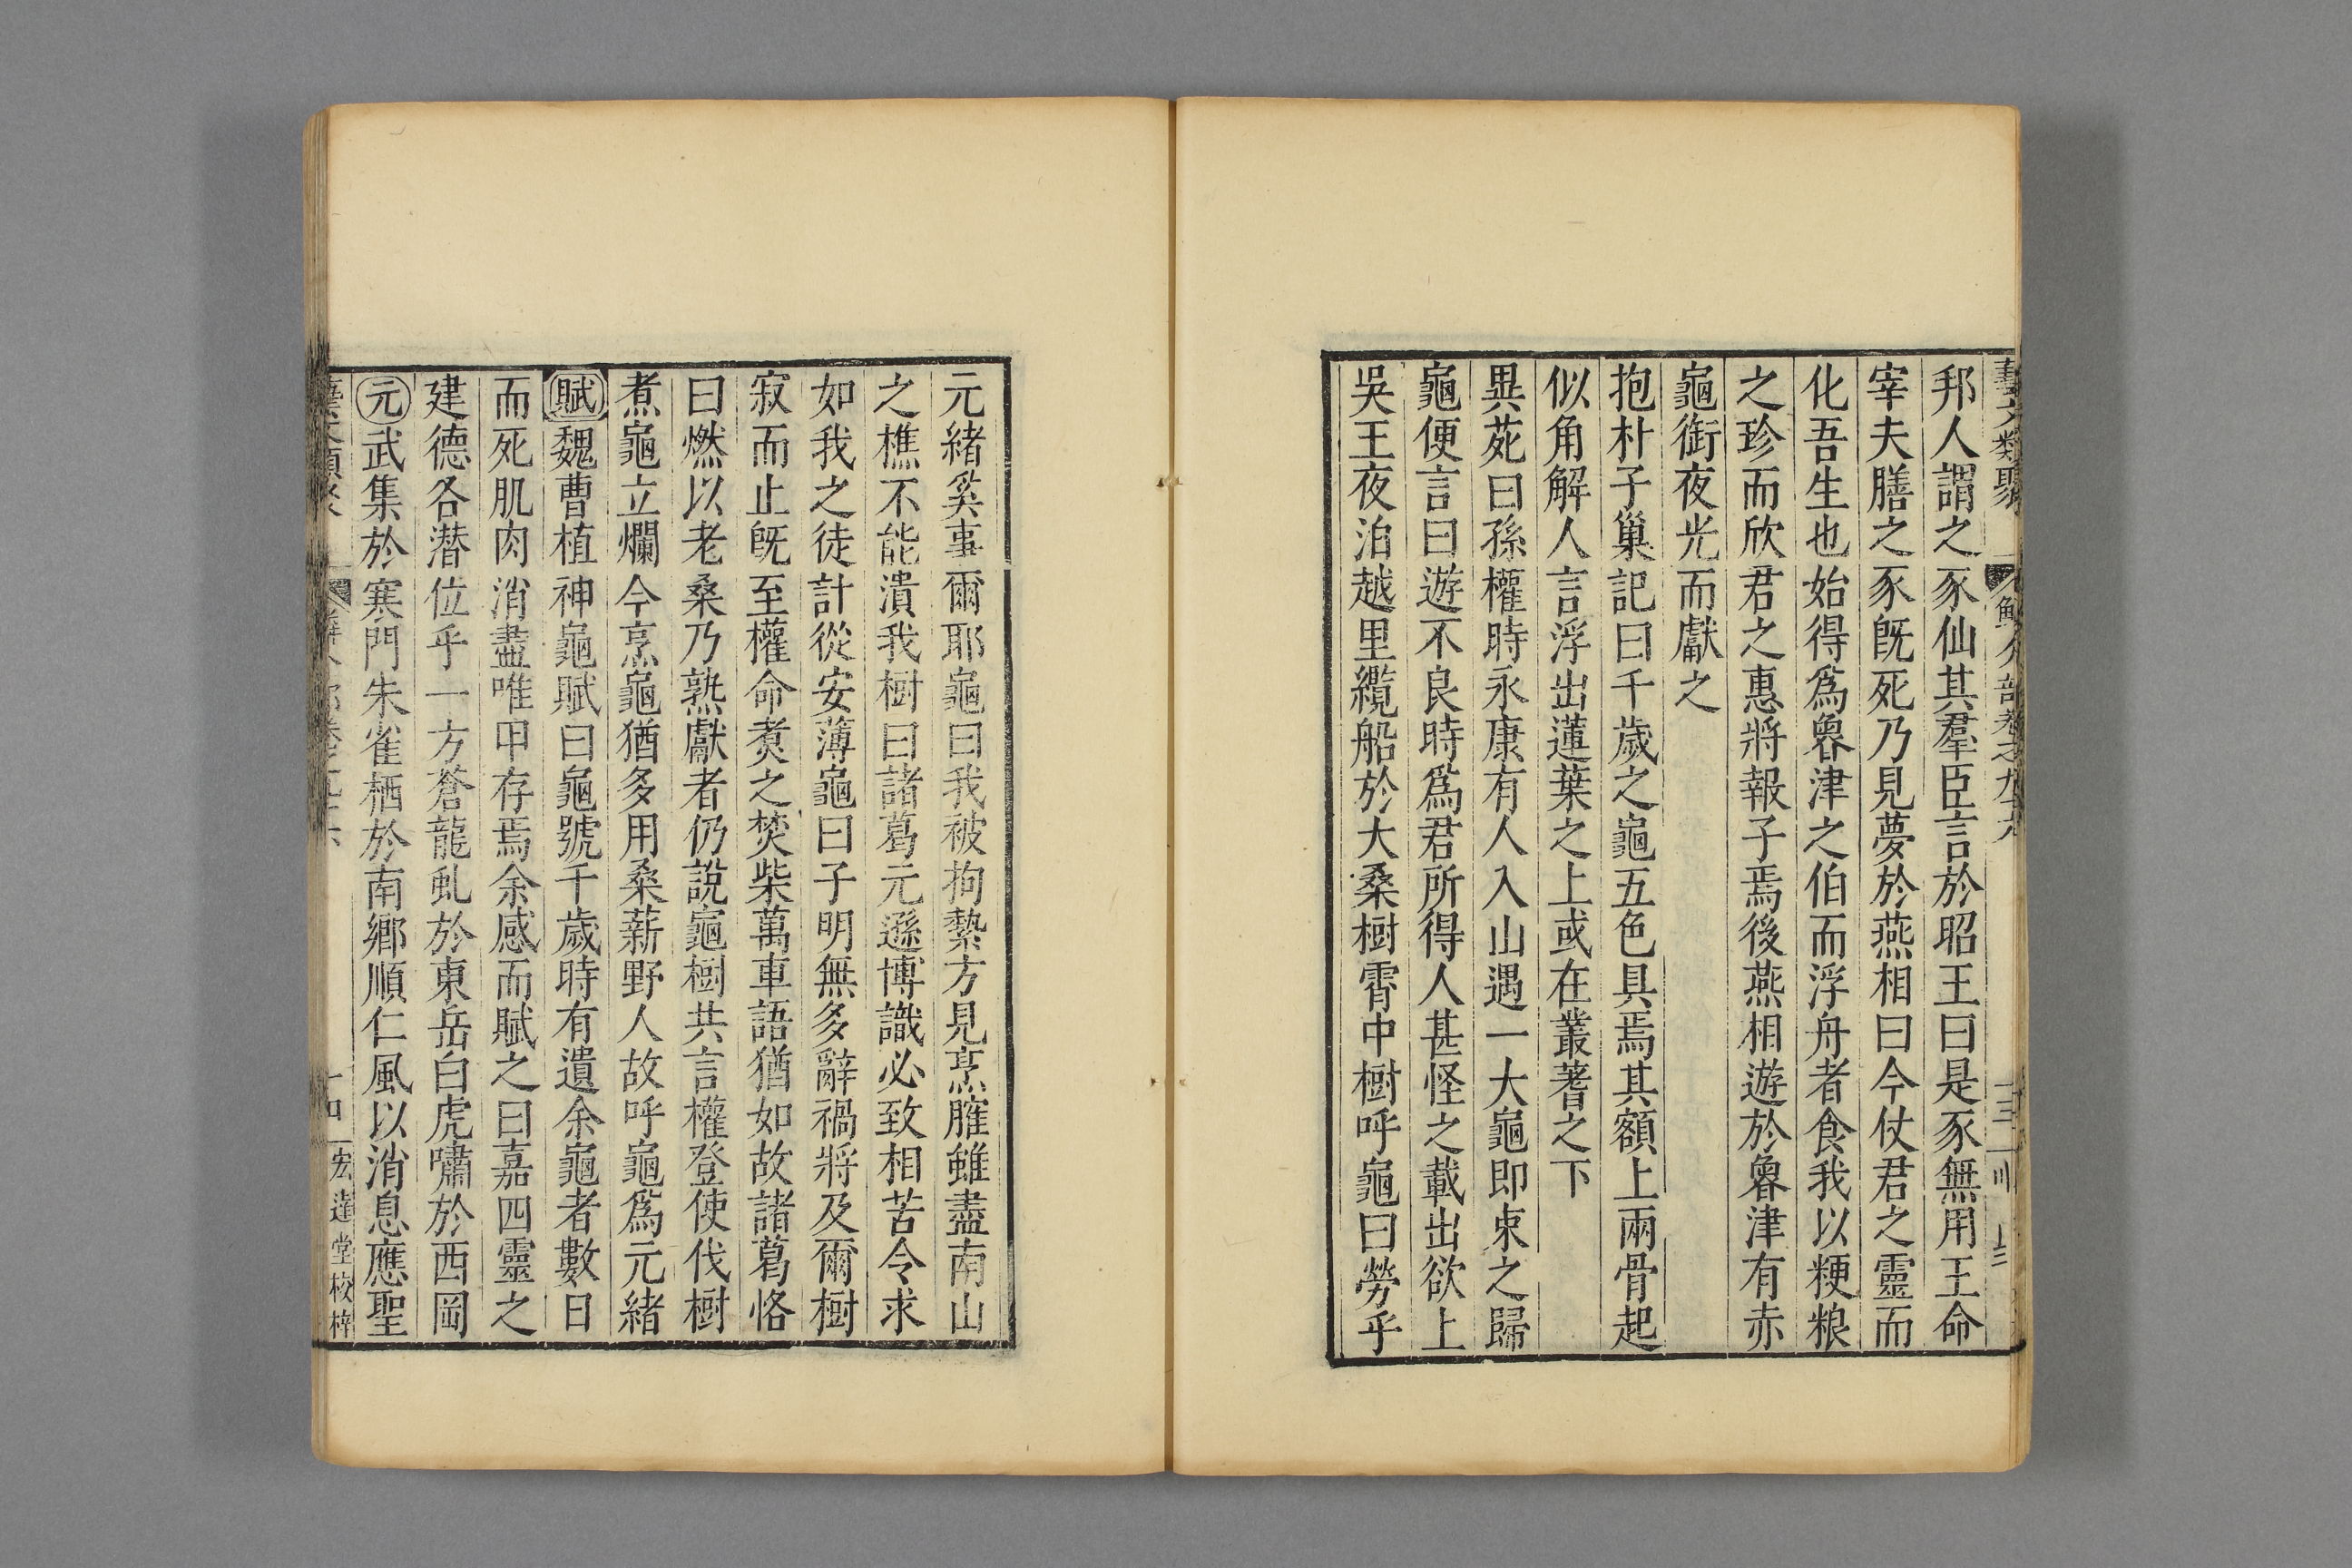 邦人謂之豕仙其羣臣言於昭王曰是豕無用王命
宰夫膳之豕旣死乃見夢於燕相曰今仗君之靈而
化吾生也始得爲魯津之伯而浮舟者食我以粳粮
之珍而欣君之惠將報子焉後燕相遊於魯津有赤
龜銜夜光而獻之
抱朴子巢記曰千歲之龜五色具焉其額上兩骨起
似角解人言浮出蓮葉之上或在叢蓍之下
異苑曰孫權時永康有人入山遇一大龜即束之歸
龜便言曰遊不良時爲君所得人甚怪之載出欲上
吳王夜泊越里纜船於大桑樹霄中樹呼龜曰勞乎
元緒奚事爾耶龜曰我被拘縶方見烹臛雖盡南山
之樵不能潰我樹曰諸葛元遜博識必致相苦令求
如我之徒計從安薄龜曰子明無多辭禍將及爾樹
寂而止旣至權命煑之焚柴萬車語猶如故諸葛恪
曰燃以老桑乃熟獻者仍說龜樹共言權登使伐樹
煮龜立爛今烹龜猶多用桑薪野人故呼龜爲元緒
賦魏曹植神龜賦曰龜號千歲時有遺余龜者數日
而死肌肉消盡唯甲存焉余感而賦之曰嘉四靈之
建德各潜位乎一方蒼龍虬於東岳白虎嘯於西岡
元武集於寒門朱雀栖於南鄉順仁風以消息應聖
宏達堂校梓